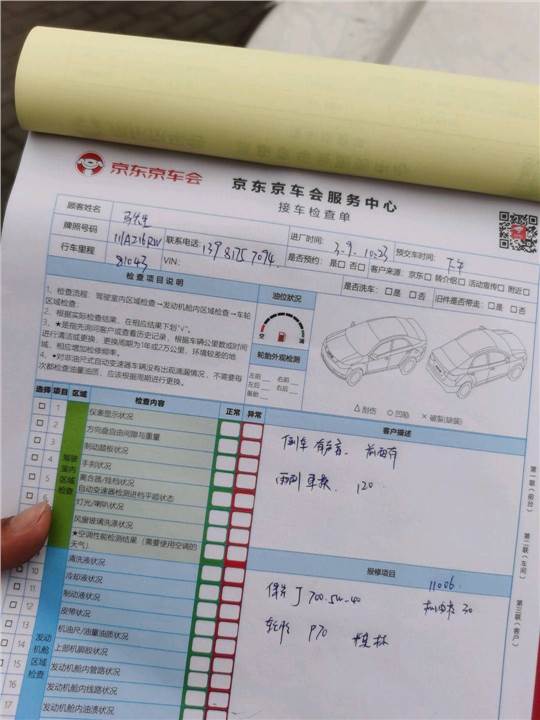 京东京车会
京东京车会服务中心
接车检查单
顾客姓名
牌照号码 联系电话: 进厂时间: 3.9. 10:23 预交车时间: 下午
行车里程 81043 VIN: 是否预约: 是 否 客户来源: 京东 转介绍 活动宣传 附近
是否洗车: 是 否 旧件是否带走: 是 否
检查项目说明
1、检查流程: 驾驶室内区域检查→发动机舱内区域检查→车轮
区域检查;
2、根据实际检查结果, 在相应结果下划“√”。
3、★是指先询问客户或查看历史记录, 根据车辆公里数或时间
进行清洁或更换, 更换周期为1年或2万公里, 环境较差的地
域, 相应增加检修频率。
4、*对非油尺式自动变速器车辆没有出现滴漏情况, 不需要每
次都检查油量油质, 应该根据周期进行更换。
油位状况
空 满
轮胎外观检测
左前 右前
左后 右后
备胎
△ 刮伤 ○ 凹陷 × 破裂(缺装)
选择 项目 区域 检查内容 正常 异常
驾驶室内区域检查
1 仪表显示状况
2 方向盘自由间隙与重量
3 制动踏板状况
4 手刹状况
5 离合器/挂档状况
自动变速器检测进档平顺状态
6 灯光/喇叭状况
风窗玻璃洗涤状况
★空调性能检测结果(需要使用空调的
天气)
发动机舱内区域检查
清洗液状况
10 冷却液状况
11 制动液状况
12 皮带状况
13 机油尺/油量油质状况
14 上部机脚胶状况
15 发动机舱内管路状况
16 发动机舱内线路状况
17 发动机舱内油渍状况
客户描述
倒车 有声音.
120
报修项目
1100b
保养 J 700.5W-40 30
轮胎 P70
第一联(前台)
第二联(车间)
第三联(客户)